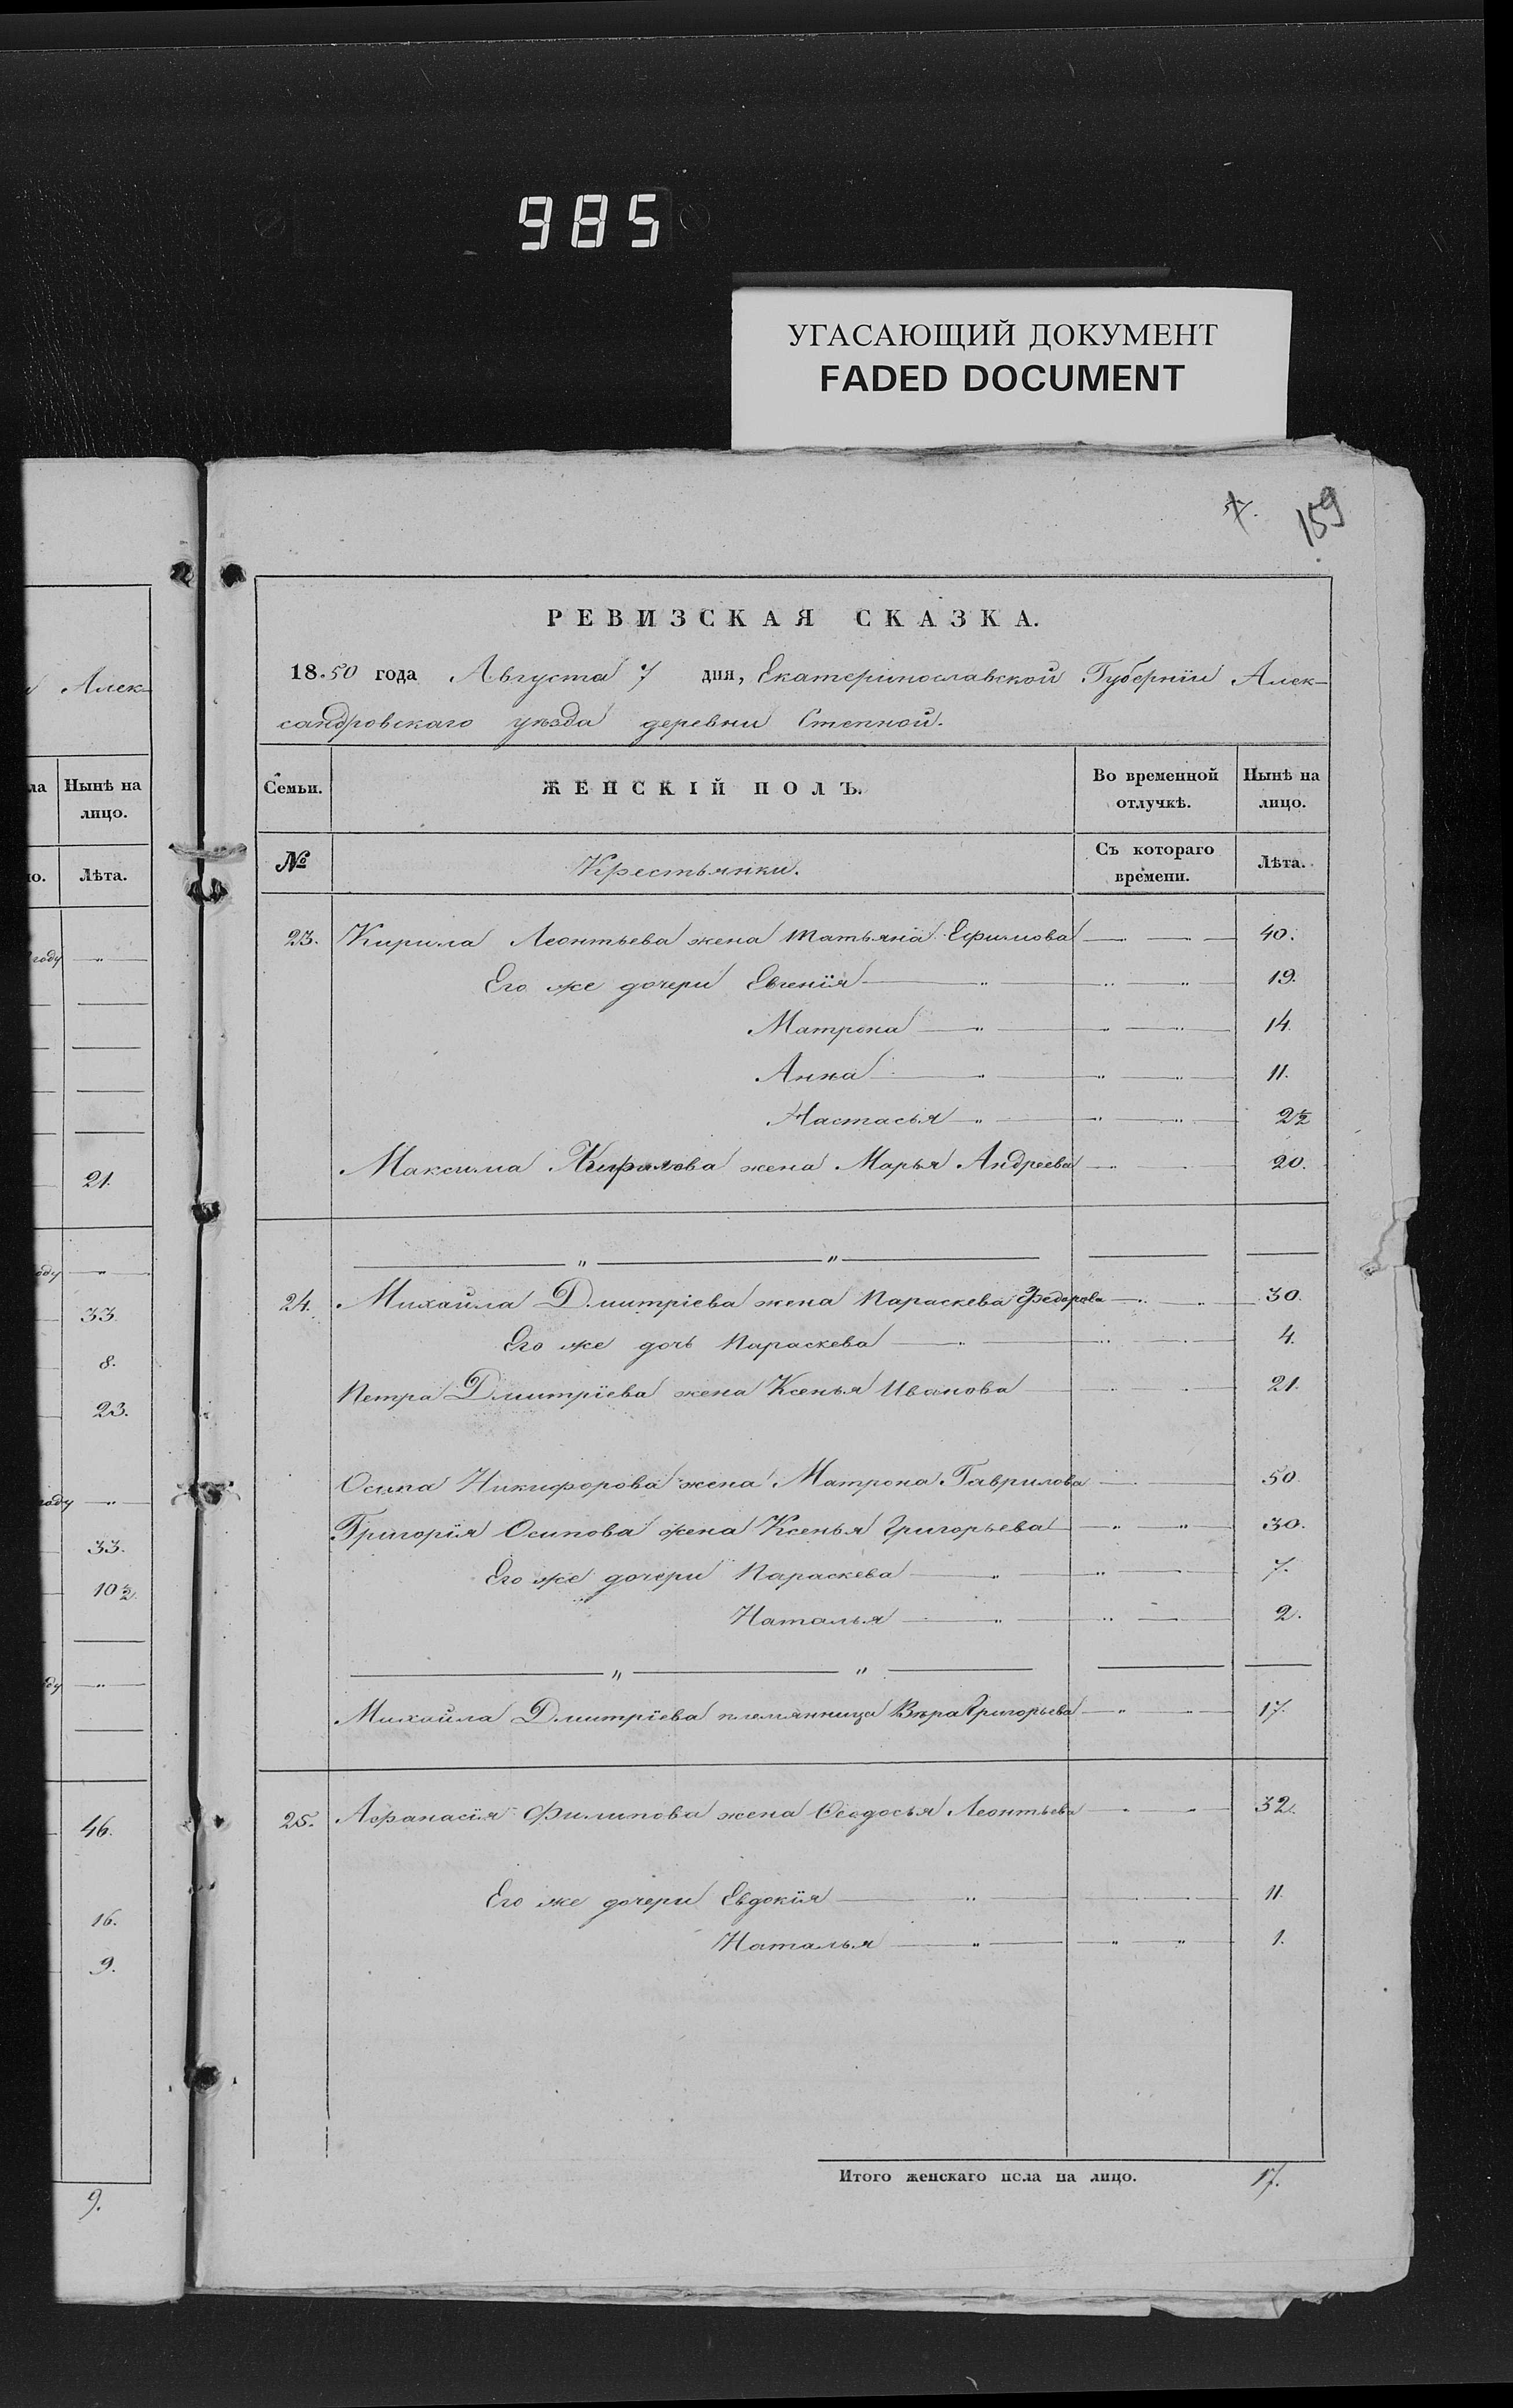 985
УГАСАЮЩИЙ ДОКУМЕНТ
FADED DOCUMENT
159
РЕВИЗСКАЯ СКАЗКА.
1850 года Августа 7 дня, Екатеринославской Губернїи Алек-
сандровскаго уѣзда деревни Степной.
Семьи. ЖЕНСКІЙ ПОЛЪ. Во временной отлучкѣ. Нынѣ на лицо.
№ Крестьянки. Съ котораго времени. Лѣта.
23. Кирила Леонтьева жена Татьяна Ефимова 40.
Его же дочери Евгенїя " 19.
Матрона " 14.
Анна " 11.
Настасья " 2½
Максима Кирилова жена Марья Андреева 20.
" "
24. Михайла Дмитрїева жена Параскева Федорова 30.
Его же дочь Параскева " 4.
Петра Дмитрїева жена Ксенья Иванова 21.
Осипа Никифорова жена Матрона Гаврилова 50.
Григорїя Осипова жена Ксенья Григорьева " " 30.
Его же дочери Параскева " " 7.
Наталья " " 2.
" "
Михайла Дмитрїева племянница Вѣра Григорьева " " 17.
25. Афанасїя Филипова жена Ѳеодосья Леонтьева " " 32.
Его же дочери Евдокїя " 11.
Наталья " " " 1.
Итого женскаго пола на лицо. 17.
Алек-
Нынѣ на
лицо.
Лѣта.
году "
21.
33.
8.
23.
"
33.
10½
"
46.
16.
9.
9.